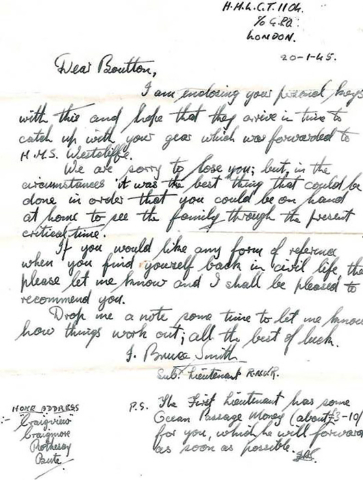 H.M.L.C.T. 1104.
℅ G.P.O.
LONDON.
20-1-45.
Dear Boutton,
I am enclosing your personal keys
with this and hope that they arrive in time to
catch up with your gear which was forwarded to
H.M.S. Westcliffe.
We are sorry to lose you; but, in the
circumstances it was the best thing that could be
done in order that you could be on hand
at home to see the family through the present
critical time.
If you would like any form of reference
when you find yourself back in civil life then
please let me know and I shall be pleased to
recommend you.
Drop me a note some time to let me know
how things work out; all the best of luck.
J. Bruce Smith
Sub. Lieutenant R.N.V.R.
HOME ADDRESS
Craigview
Craigmore
Rothesay
Bute
P.S. The First Lieutenant has some
Ocean Passage Money (about £3-10/
for you, which he will forward
as soon as possible.